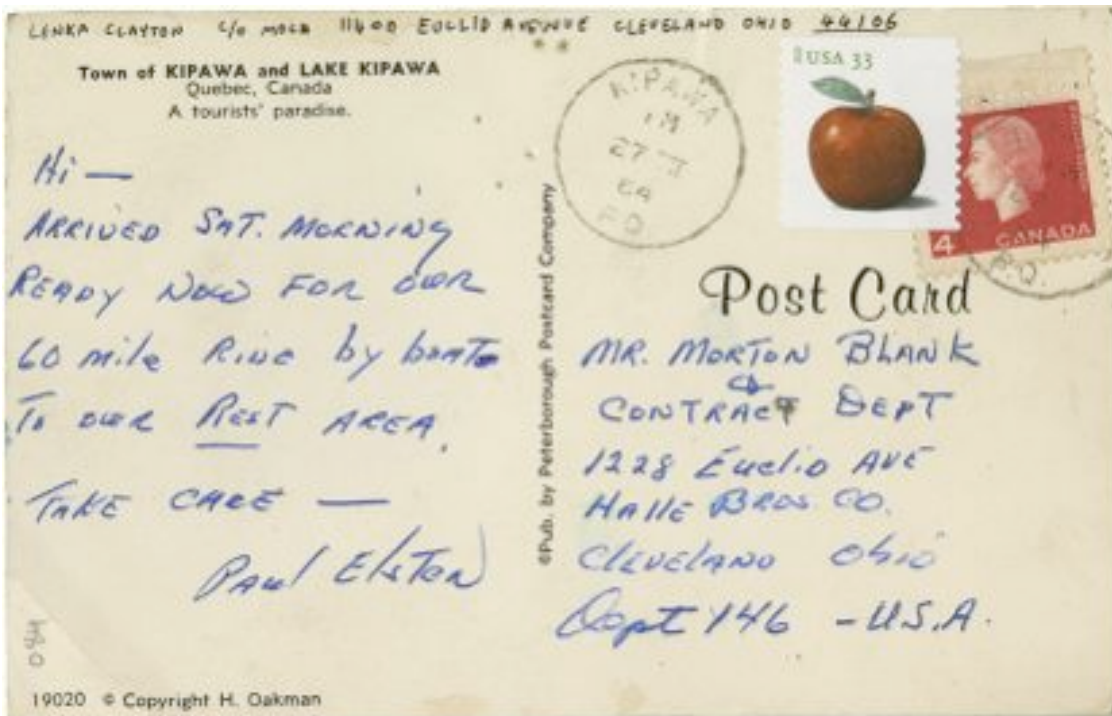 LENKA CLAYTON C/O MOCA 11400 EUCLID AVENUE CLEVELAND OHIO 44106
Town of KIPAWA and LAKE KIPAWA
Quebec, Canada
A tourists' paradise.
Hi —
ARRIVED SAT. MORNING
READY NOW FOR OUR
60 mile RIDE by boat
To OUR REST AREA.
TAKE CARE —
PAUL ELSTON
084
19020 © Copyright H. Oakman
©Pub. by Peterborough Postcard Company
KIPAWA
27
64
P.Q.
USA 33
4 CANADA
P.Q.
Post Card
MR. MORTON BLANK
CONTRACT DEPT
1228 Euclid AVE
HALLE BROS CO.
CLEVELAND OHIO
Dept 146 - U.S.A.